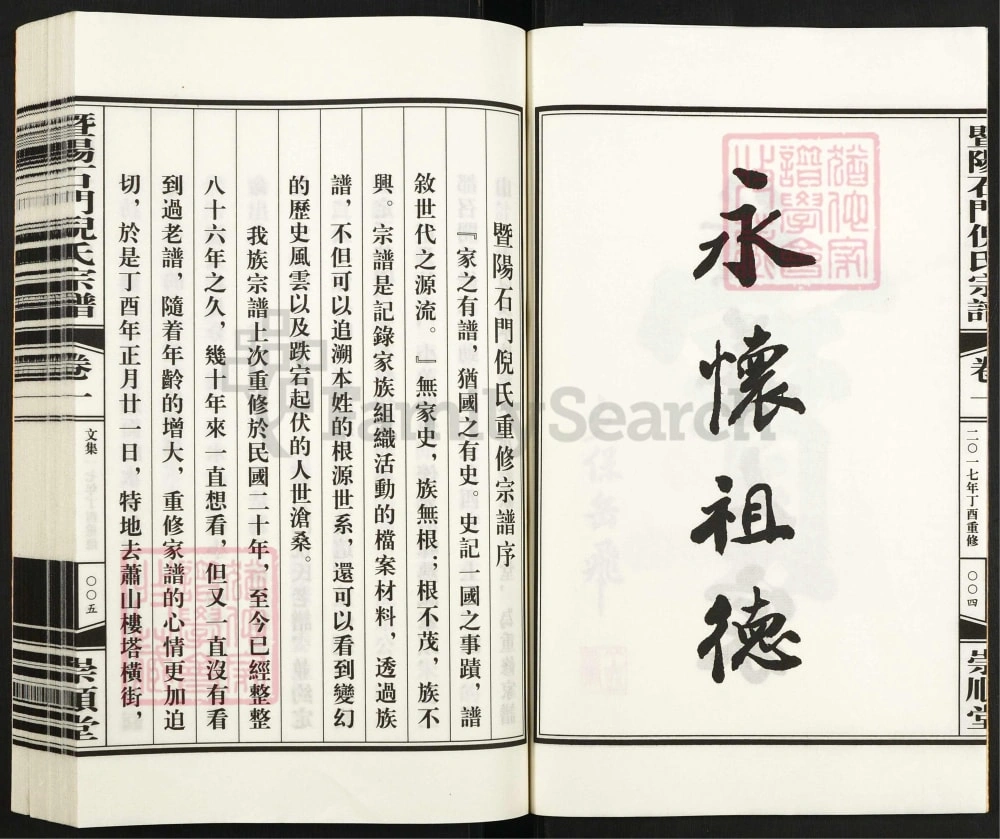 永懷祖德
暨陽石門倪氏宗譜
卷一
二〇一七年丁酉重修
〇〇四
崇順堂
暨陽石門倪氏重修宗譜序
『家之有譜，猶國之有史。史記一國之事蹟，譜
敘世代之源流。』無家史，族無根；根不茂，族不
興。宗譜是記錄家族組織活動的檔案材料，透過族
譜，不但可以追溯本姓的根源世系，還可以看到變幻
的歷史風雲以及跌宕起伏的人世滄桑。
我族宗譜上次重修於民國二十年，至今已經整整
八十六年之久，幾十年來一直想看，但又一直沒有看
到過老譜，隨着年齡的增大，重修家譜的心情更加迫
切，於是丁酉年正月廿一日，特地去蕭山樓塔橫街，
暨陽石門倪氏宗譜
卷一
文集
〇〇五
崇順堂
FamilySearch